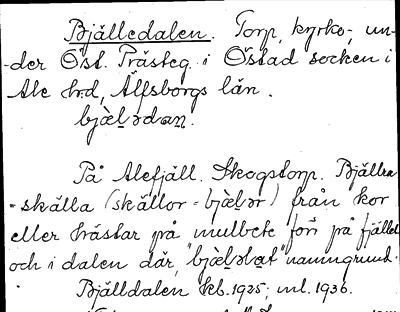 Bjälledalen. Torp, kyrko-, un-
-der Öst. Prästeg. i Östad socken i
Ale hrd, Älfsborgs län.
bjæ̀l̲ədan̲.
På Alefjäll. Skogstorp. Bjällra
= skälla (skällor = bjæ̀l̲ər) från kor
eller hästar på mulbete förr på fjället
och i dalen där, "bjæ̀l̲əlat" namngrund.
Bjälldalen Keb. 1925; ml. 1936.